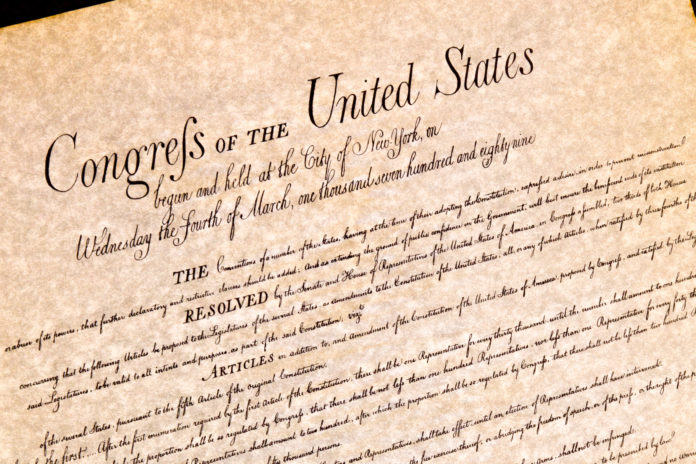 Congreſs OF THE United States
begun and held at the City of New-York, on
Wednesday the fourth of March, one thousand seven hundred and eighty nine
THE Conventions of a number of the States, having at the time of their adopting the Constitution, expressed a desire, in order to prevent misconstruction
or abuse of its powers, that further declaratory and restrictive clauses should be added: And as extending the ground of public confidence in the Government, will best ensure the beneficent ends of its institution
RESOLVED by the Senate and House of Representatives of the United States of America, in Congreſs aſsembled, two thirds of both Houses
concurring that the following Articles be proposed to the Legislatures of the several States, as amendments to the Constitution of the United States, all, or any of which Articles, when ratified by three fourths of the
said Legislatures, to be valid to all intents and purposes, as part of the said Constitution; vizt.
ARTICLES in addition to, and Amendment of the Constitution of the United States of America, proposed by Congreſs, and ratified by the Leg
of the several States, pursuant to the fifth Article of the original Constitution.
the first.... After the first enumeration required by the first Article of the Constitution, there shall be one Representative for every thirty thousand, until the number shall amount to one hund
the proportion shall be so regulated by Congreſs, that there shall be not leſs than one hundred Representatives, nor leſs than one Representative for every forty th
Representatives shall amount to two hundred, after which the proportion shall be so regulated by Congreſs, that there shall not be leſs than two hundred
fifty thousand persons.
and Representatives, shall take effect, until an election of Representatives shall have intervened.
the free exercise thereof; or abridging the freedom of speech, or of the preſs, or the right of the p
Arms, shall not be infringed.
to be prescribed by law.